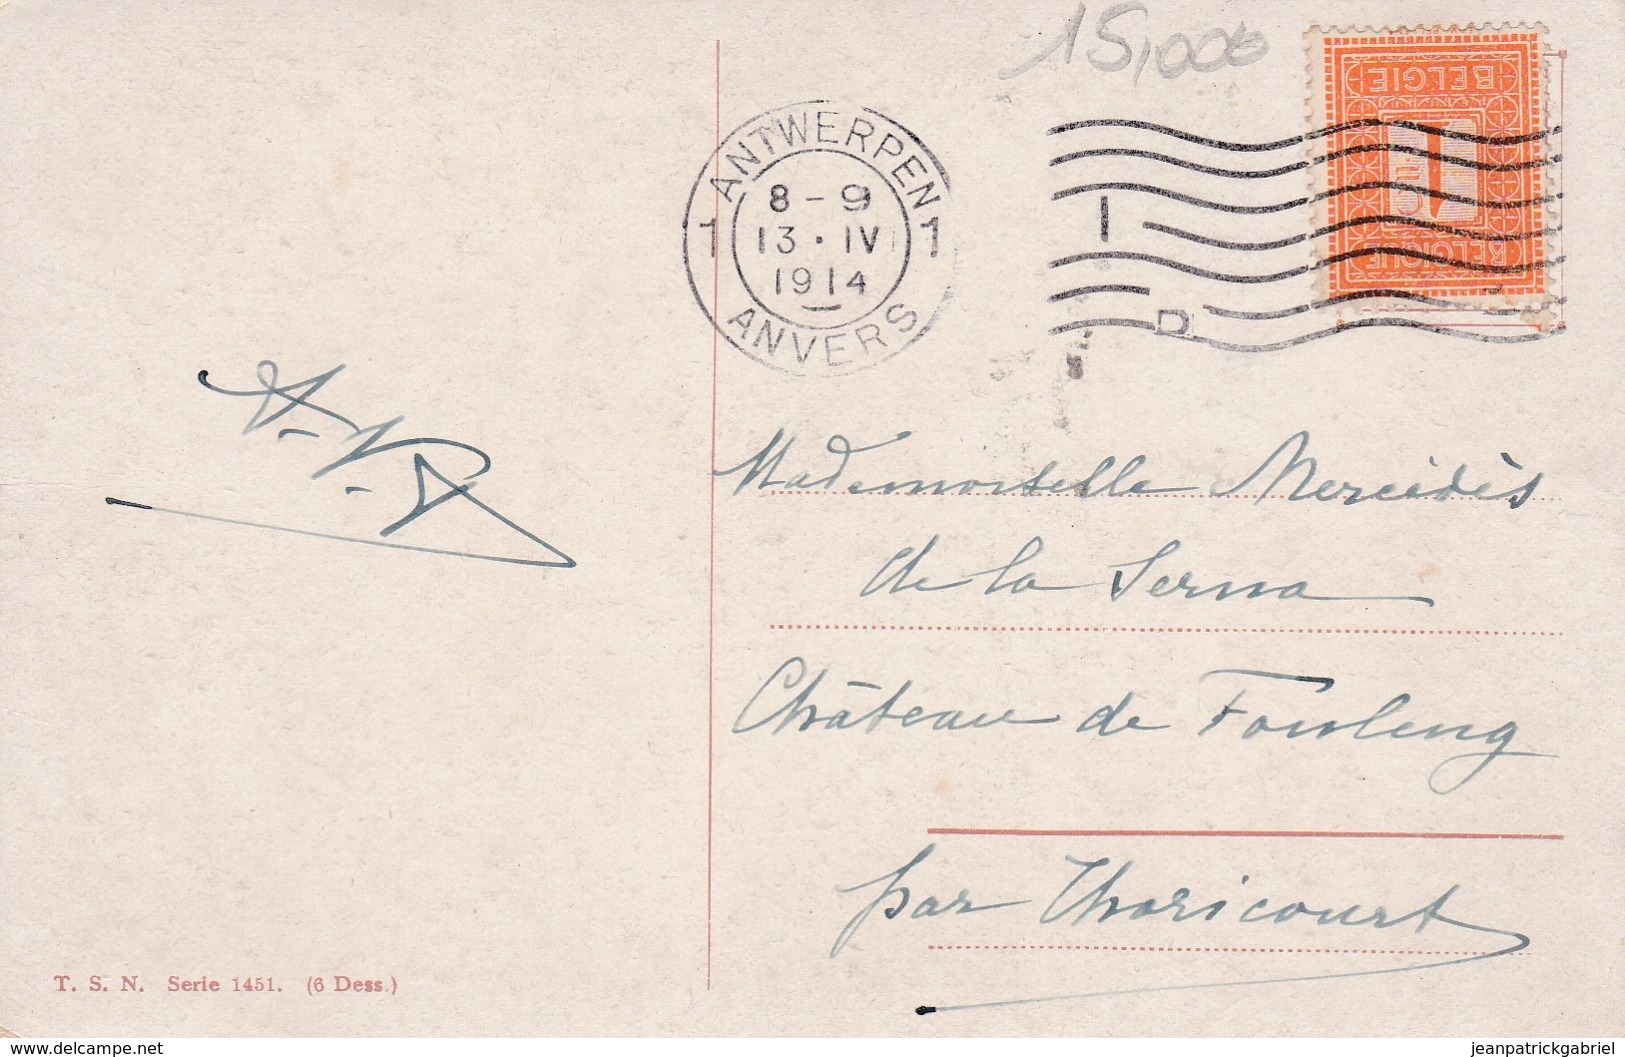 15,00
BELGIE
1
BELGIQUE
ANTWERPEN
8 - 9
1 13 · IV 1
1914
ANVERS
Mademoiselle Mercédès
de la Serna
Château de Fouleng
par Thoricourt
T. S. N. Serie 1451. (6 Dess.)
www.delcampe.net
jeanpatrickgabriel